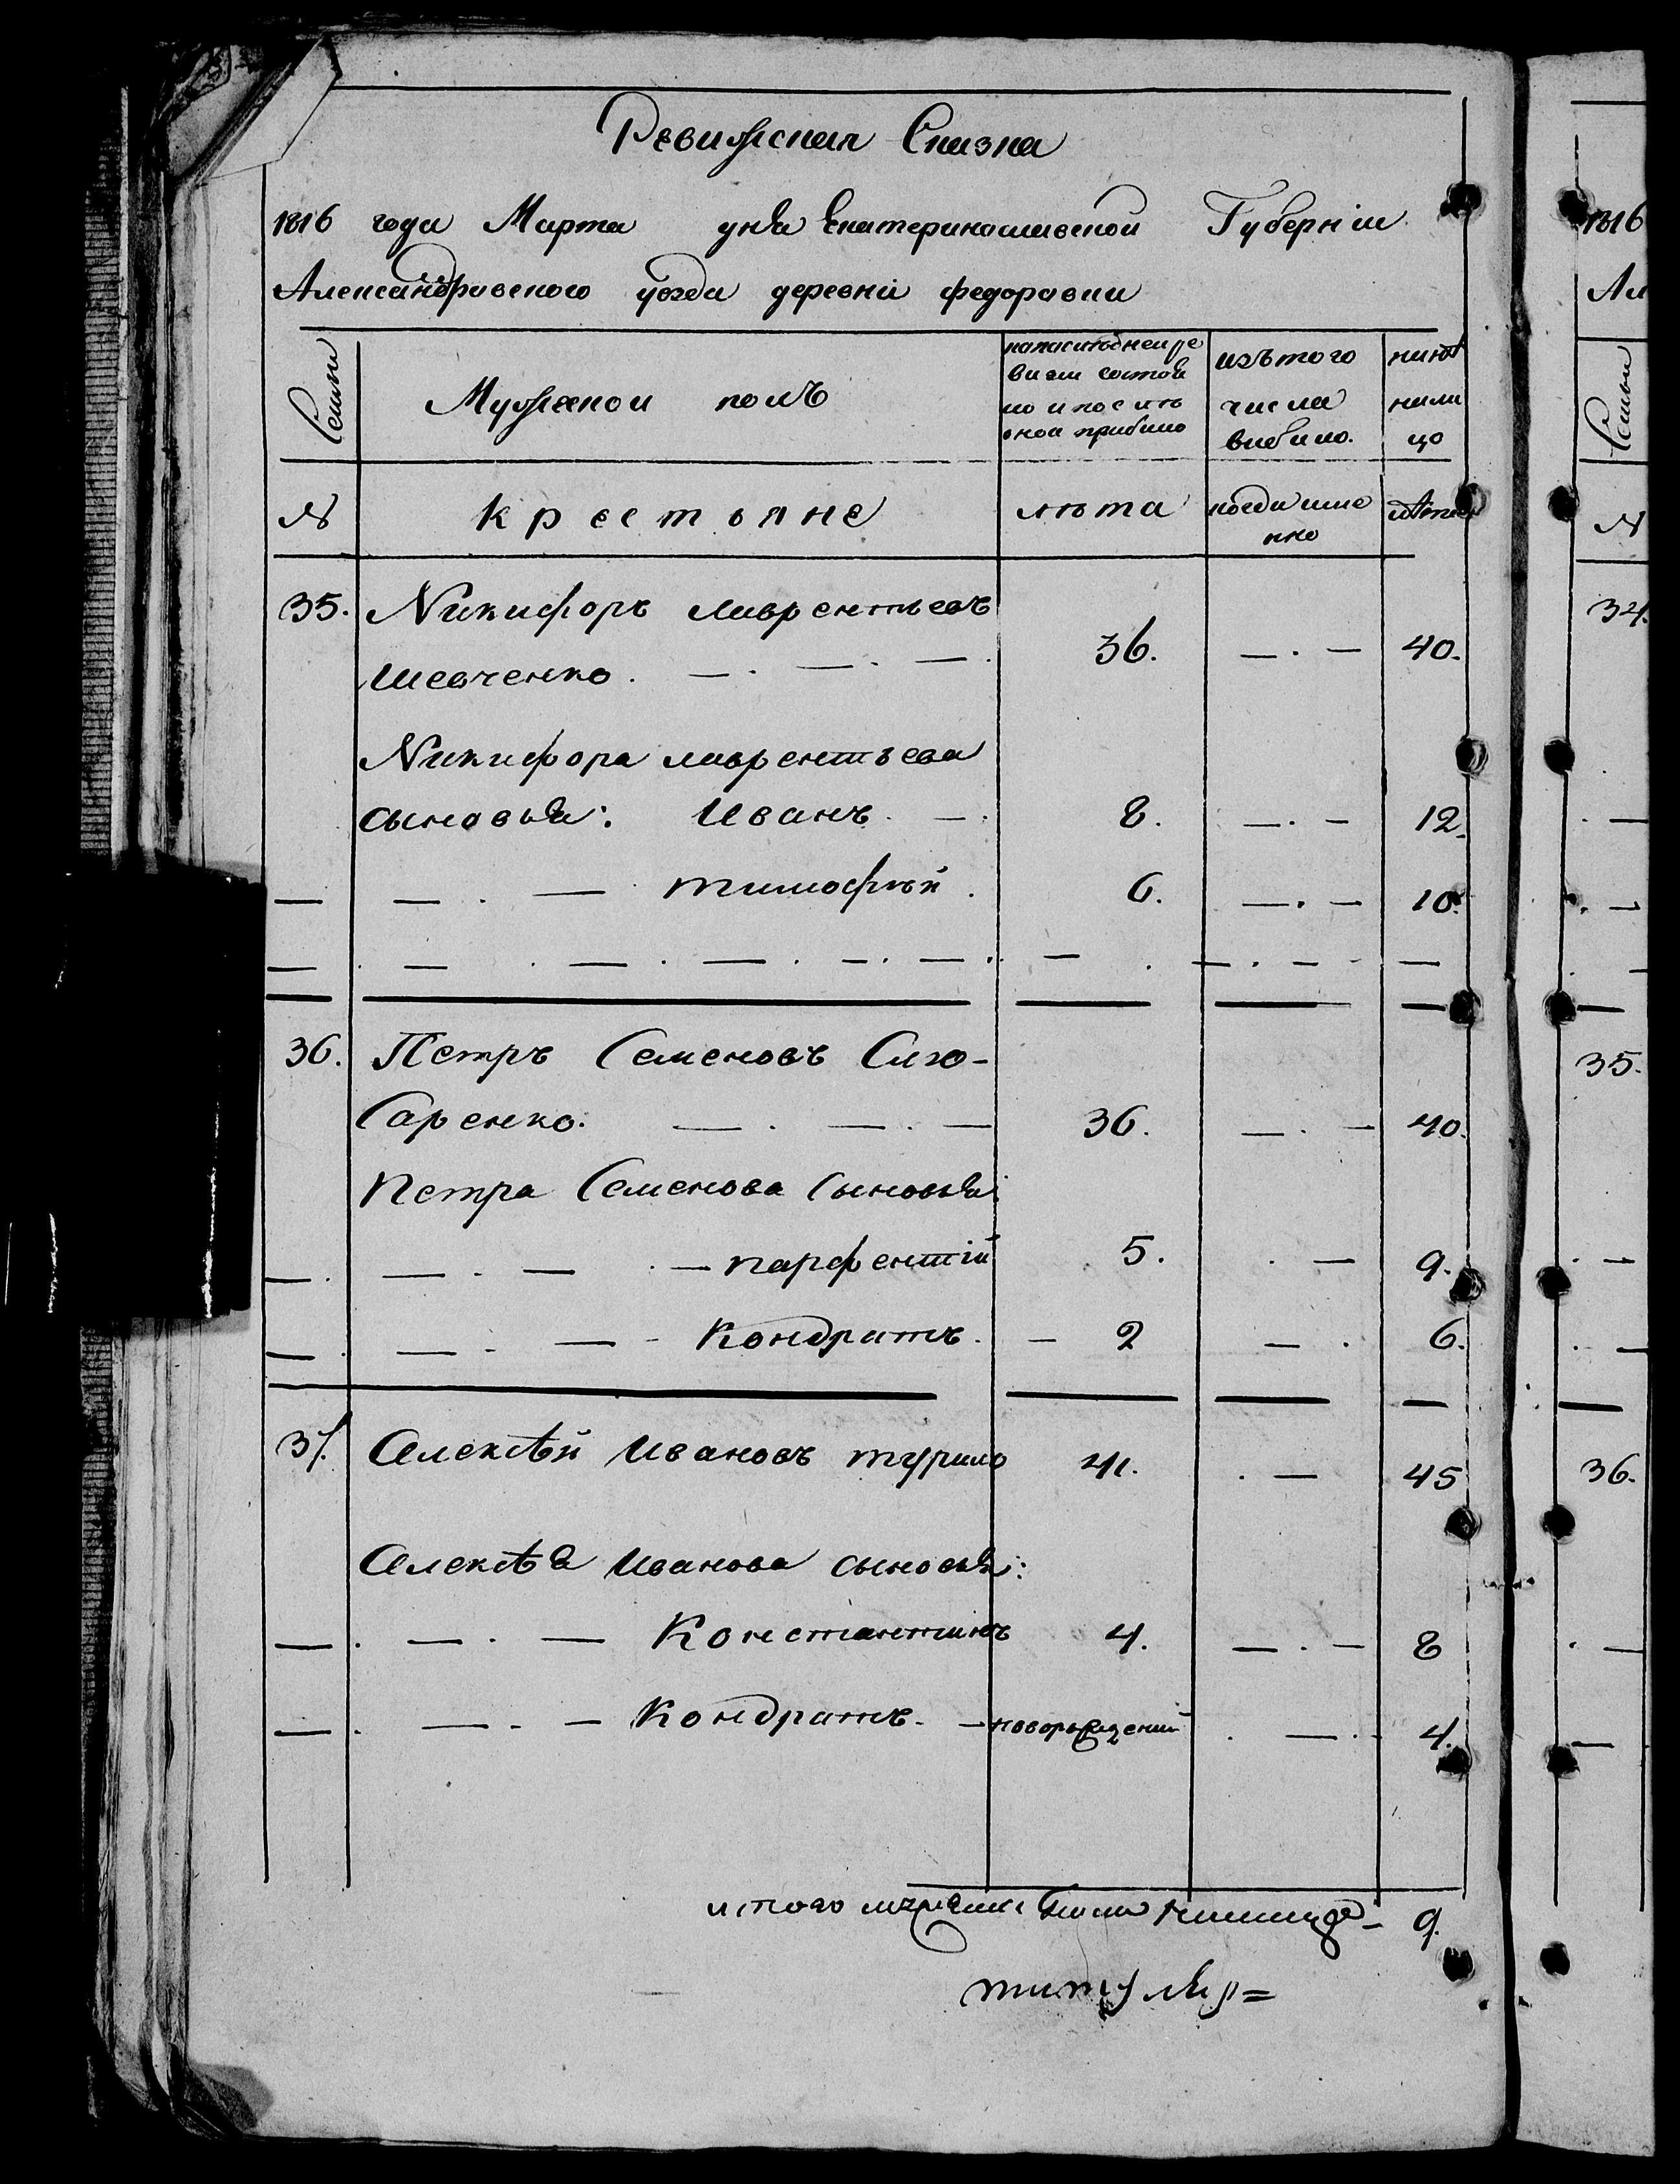 Ревижская Сказка
1816 года Марта дня Екатеринославской Губерніи
Александровского уѣзда деревни федоравки
Семьи
Мужеской полъ
по последней ре
визии состоя
ло и после
оной прибыло
изъ того
числа
выбыло.
ныне
на ли
цо
№
крестьяне
лѣта
когда име
нно
лѣта
35. Никифоръ лаврентьевъ
Шевченко. 36. 40.
Никифора лаврентьева
сыновья: Иванъ 8. 12.
тимофѣй 6. 10.
36. Петръ Семеновъ Слю-
Саренко. 36. 40.
Петра Семенова Сыновья
парфентій 5. 9.
Кондратъ. 2 6.
37. Алексѣй Ивановъ турило 41. 45
Алексѣя Иванова сыновья:
Константинъ 4. 8
Кондратъ. новорожденый 4.
итого мужеска пола налицо 9.
титуляр=
1816
Ал
Семьи
№
34.
35.
36.